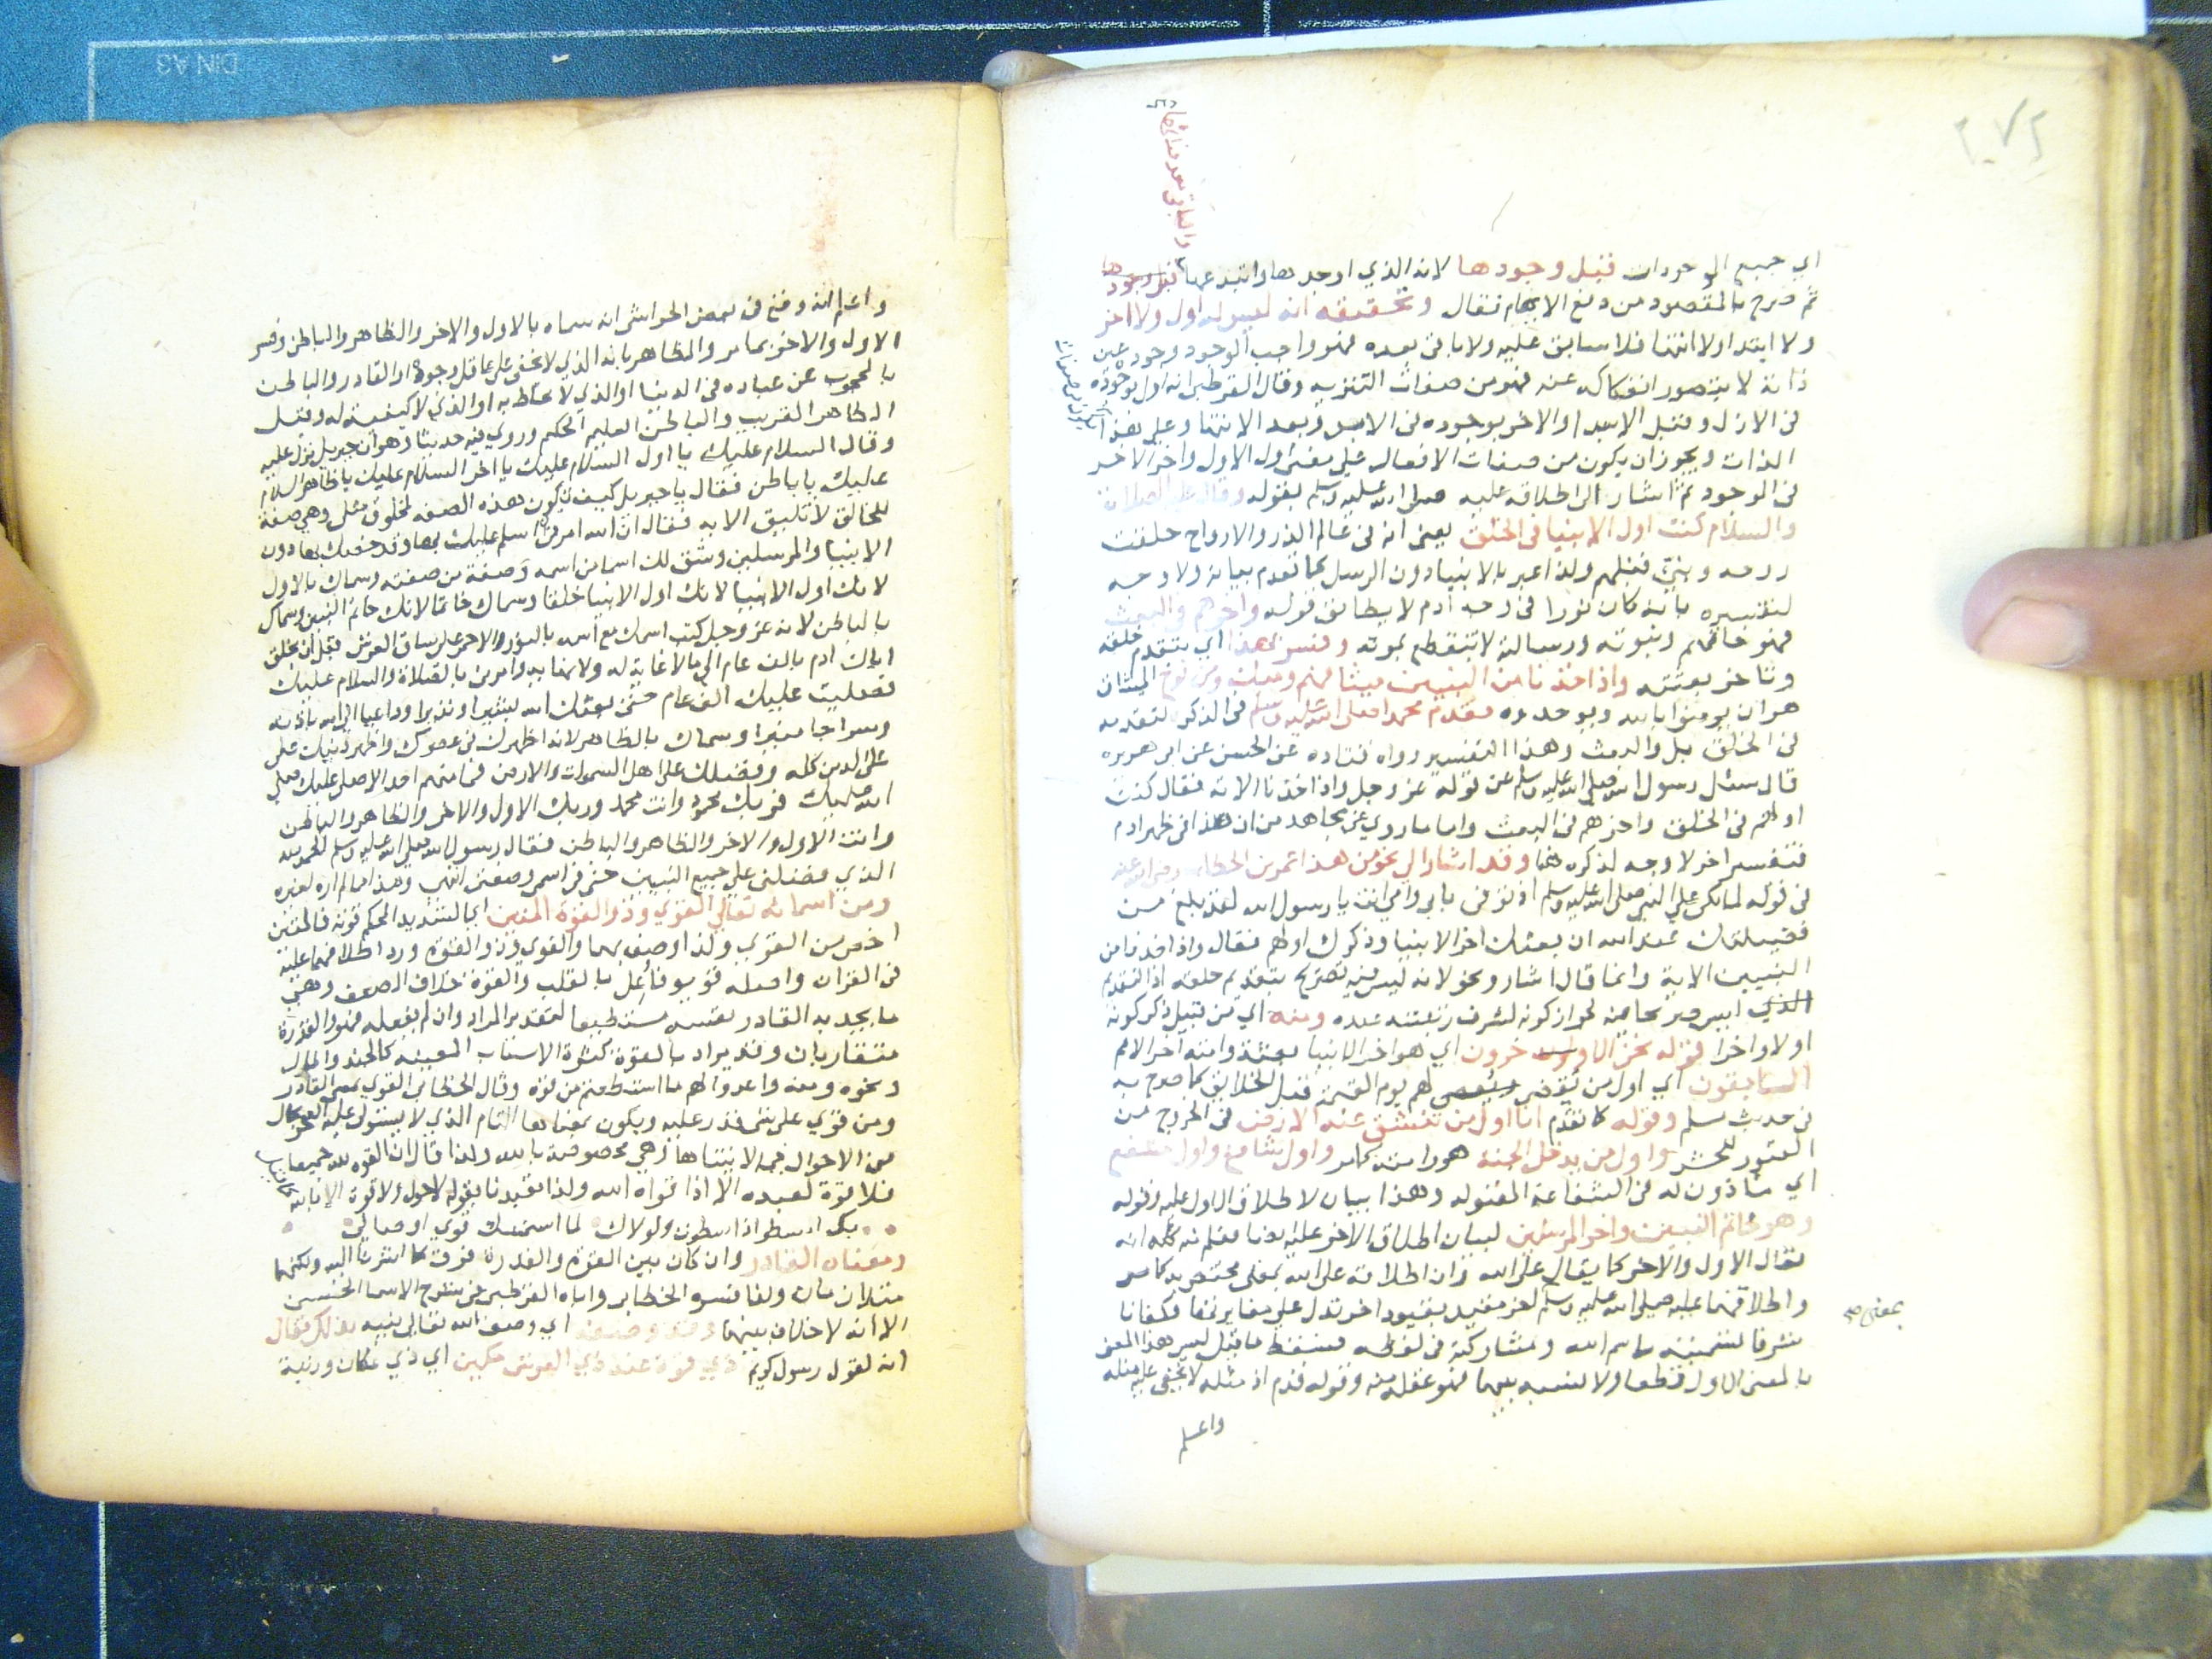 ٢٠٧٢
والباقي بعد فنائها صح
اي جميع الموجودات قبل وجودها لانه الذي اوجدها وابتدعها قبل وجودها
ثم صرح بالمقصود من دفع الايهام فقال وتحقيقه انه ليس له اول ولا اخر
ولا ابتدا ولا انتها فلا سابق عليه ولا باق بعده فهو واجب الوجود وجوده عين
ذاته لا يتصور انفكاكه عنه فهو من صفات التنزيه وقال القرطبي انه اول بوجوده
في الازل وقبل الابتدا والاخر بوجوده في الابد وبعد الانتها وعلى هذا
الذات ويجوز ان يكون من صفات الافعال على معنى اول الاول واخر الاخر
في الوجود ثم اشار الى اطلاقه عليه صلى الله عليه وسلم بقوله وقال عليه الصلاة
والسلام كنت اول الانبيا في الخلق يعني انه في عالم الذر والارواح خلقت
روحه ونبئ قبلهم ولذا عبر بالانبيا دون الرسل كما تقدم بيانه ولا وجه
لتفسيره بانه كان نورا في روحه ادم لا يطابق قوله واخرهم في البعث
فهو خاتمهم ونبوته ورسالته لا تنقطع بموته وفسر بهذا اي بتقدم خلقه
وتاخر بعثته واذ اخذنا من النبيين ميثاقهم ومنك ومن نوح الميثاق
هو ان يومنوا بالله ويوحدوه فقدم محمدا صلى الله عليه وسلم في الذكر لتقدمه
في الخلق بل والبعث وهذا التفسير رواه قتاده عن الحسن عن ابي هريره
قال سئل رسول الله صلى الله عليه وسلم عن قوله عز وجل واذ اخذنا الاية فقال كنت
اولهم في الخلق واخرهم في البعث واما ما روي عن مجاهد من ان هذا في ظهر ادم
فتفسير اخر لا وجه لذكره هنا وقد اشار الى نحو من هذا عمر بن الخطاب رضي الله عنه
في قوله لما بكى على النبي صلى الله عليه وسلم اذ توفى بابي وامي انت يا رسول الله لقد بلغ من
فضيلتك عند الله ان بعثك اخر الانبيا وذكرك اولهم فقال واذ اخذنا من
النبيين الاية وانما قال اشار ونحو لانه ليس فيه تصريح بتقديم خلقه اذ التقديم
الذي ليس صريحا فيه لجواز كونه لشرف رتبته عنده ومنه اي من قبيل ذكر كونه
اولا واخرا قوله نحن الاولون خرون اي هو اخر الانبيا بعثة وامته اخر الامم
السابقون اي اول من يقضى لهم يوم القيمة قبل الخلايق كما صرح به
في حديث مسلم وقوله كما تقدم انا اول من تنشق عنه الارض في الخروج من
القبور للحشر واول من يدخل الجنة هو وامته كما مر واول شافع واول مشفع
اي ماذون له في الشفاعة المقبوله وهذا بيان لاطلاق الاول عليه وقوله
وهو خاتم النبيين واخر المرسلين لبيان اطلاق الاخر عليه ايضا فعلم منه كله انه
يقال الاول والاخر كما يقال على الله وان اطلاقه على الله بمعنى مختص به كما مر
واطلاقهما عليه صلى الله عليه وسلم اخر مقيد بقيود اخر تدل على مغايرتها فكفانا
بمعنى صح
شرفا لتسميته باسم الله ومشاركته في لفظه فسقط ما قيل ليس هذا المعنى
بالمعنى الاول قطعا ولا نسبه بينهما فهو غفلة منه وقوله قدم اذ مثله لا يخفى عليه مثله
واعلم
واعلم انه وقع في بعض الحواشي انه سماه بالاول والاخر والظاهر والباطن وفسر
الاول والاخر بما مر والظاهر بانه الذي لا يخفى على عاقل وجوده او القادر والباطن
بالمحجوب عن عباده في الدنيا او الذي لا يحاط به او الذي لا كيفية له وقيل
الظاهر القريب والباطن العليم الحكيم وروي فيه حديثا وهو ان جبريل نزل عليه
وقال السلام عليك يا اول السلام عليك يا اخر السلام عليك يا ظاهر السلام
عليك يا باطن فقال يا جبريل كيف تكون هذه الصفة لمخلوق مثلي وهي صفة
للخالق لا تليق الا به فقال ان الله امرني ان اسلم عليك بها وقد خصك بها دون
الانبيا والمرسلين وشق لك اسما من اسمه وصفة من صفته وسماك بالاول
لانك اول الانبيا لانك اول الانبيا خلقا وسماك خاتما لانك خاتم النبيين وسماك
بالباطن لانه عز وجل كتب اسمك مع اسمه بالنور والاحمر على ساق العرش قبل ان يخلق
اباك ادم بالف عام الى ما لا غاية له ولا نهايه وامرني بالصلاة والسلام عليك
فصليت عليك الف عام حتى بعثك الله بشيرا ونذيرا وداعيا الى الله باذنه
وسراجا منيرا وسماك بالظاهر لانه اظهرك في عصرك واظهر دينك على
على الدين كله وفضلك على اهل السموات والارض فما منهم احد الا صلى عليك صلى
الله عليك فربك محمود وانت محمد وربك الاول والاخر والظاهر والباطن
وانت الاول والاخر والظاهر والباطن فقال رسول الله صلى الله عليه وسلم الحمد لله
الذي فضلني على جميع النبيين حتى في اسمي وصفتي انتهى وهذا مما لم اره لغيره
ومن اسمائه تعالى القوي وذو القوة المتين اي الشديد المحكم قوته فالمتين
اخص من القوي ولذا وصف بهما والقوي وذو القوة ورد اطلاقهما عليه
في القران واصله قويو فاعل بالقلب والقوة خلاف الضعف وهي
ما يجد به القادر نفسه مستطيعا لتقدير المراد وان لم يفعله فهو والقدرة
متقاربان وقد يراد بالقوة كثرة الاسباب المعينه كالجند والمال
ونحوه ومنه واعدوا لهم ما استطعتم من قوة وقال الخطابي القوي بمعنى القادر
ومن قوي على شى قدر عليه ويكون معناها التام الذي لا يستولي عليه العجز بحال
من الاحوال فيما لا يتناها وهي مخصوصة بالله ولذا قال ان القوة لله جميعا
فلا قوة لعبده الا اذا قواه الله ولذا تعبدنا بقوله لا حول ولا قوة الا بالله
بك اسطو اذا سطوت ولولاك لما استمسك قوي اوصالي
ومعناه القادر وان كان بين القوة والقدرة فرق كما اشرنا اليه ولكنهما
متقاربان ولذا فسره الخطابي واياه القرطبي في شرح الاسما الحسنى
الا انه لا خلاف بينهما وقد وصفه اي وصف الله تعالى نبيه بذلك فقال
انه لقول رسول كريم ذي قوة عند ذي العرش مكين اي ذي مكان ورتبة